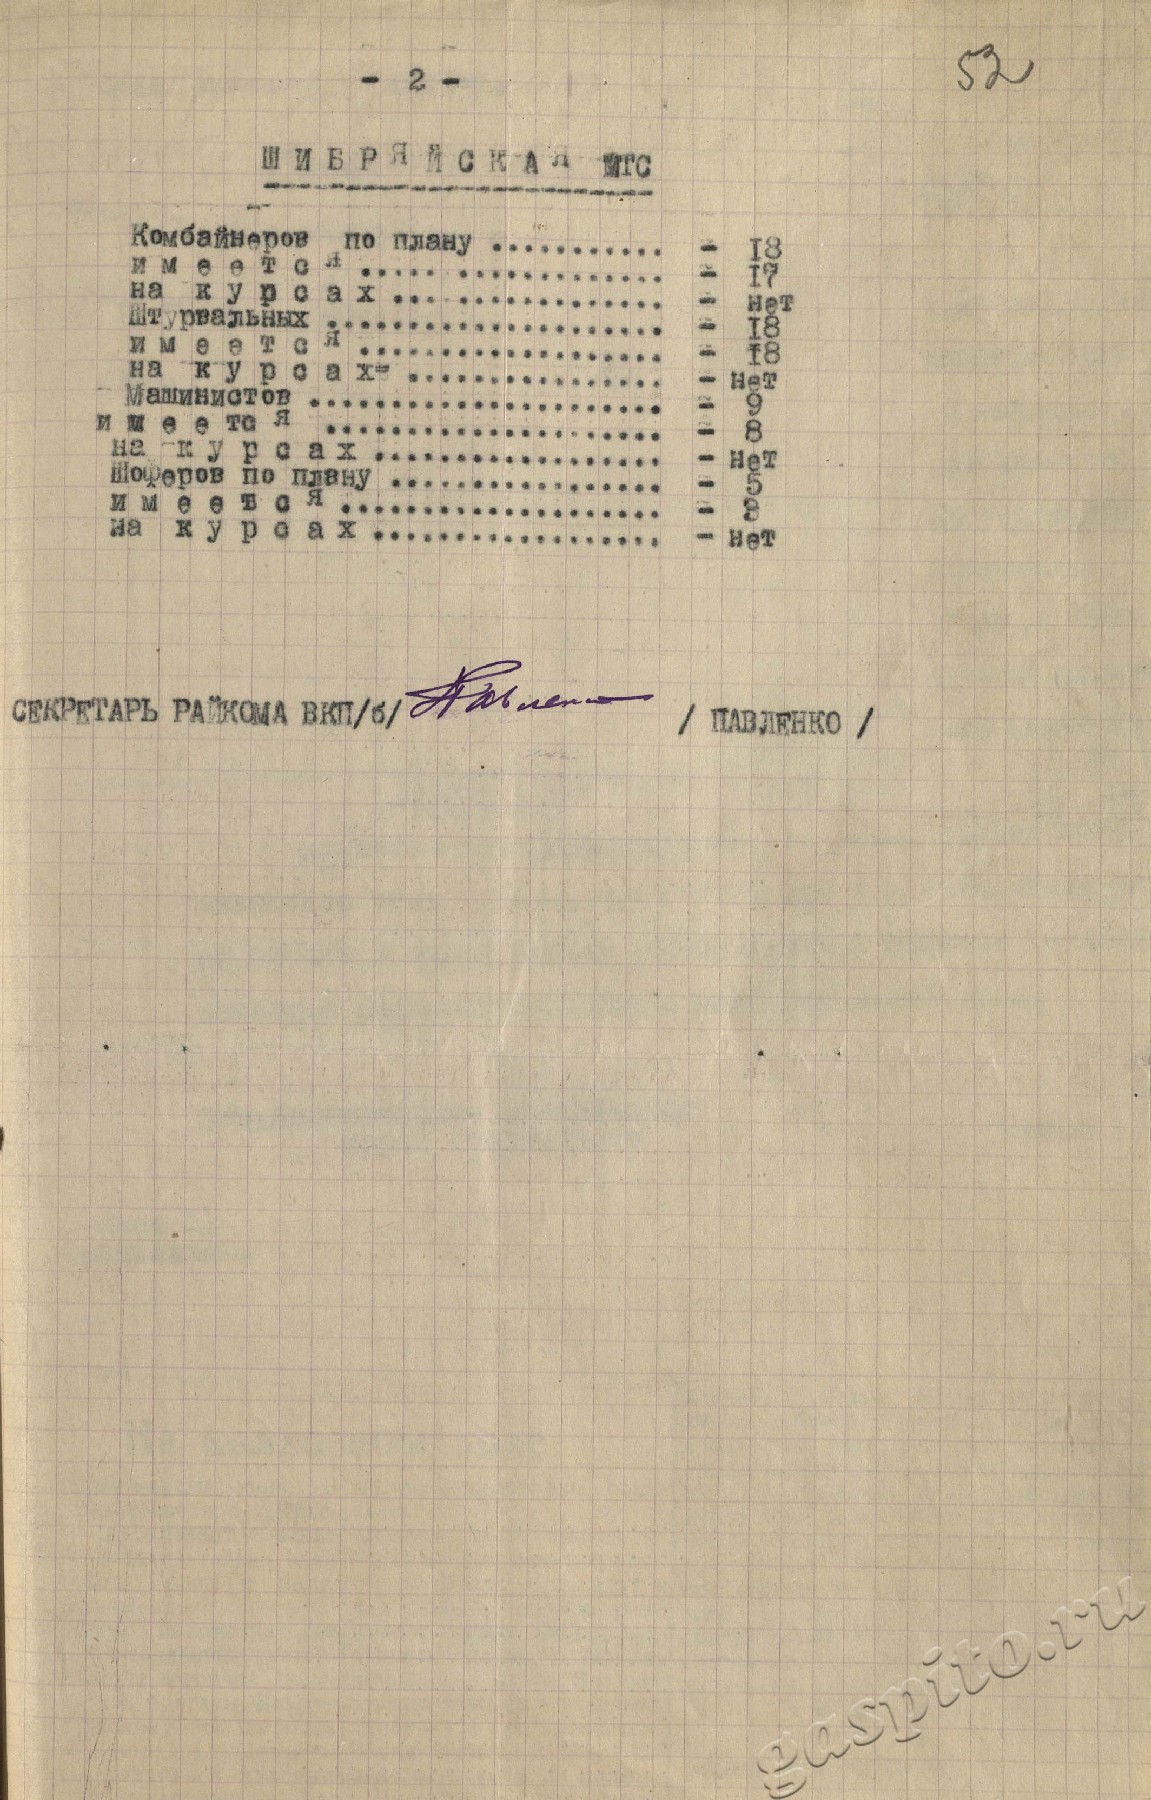 - 2 -
52
ШИБРЯЙСКАЯ МТС
Комбайнеров по плану ........... - 18
имеется ................. - 17
на курсах ................ - нет
Штурвальных .................... - 18
имеется .................. - 18
на курсах= ............... - нет
Машинистов ..................... - 9
имеется .................... - 8
на курсах ................. - нет
Шоферов по плану ................ - 5
имеется ................... - 8
на курсах ................. - нет
СЕКРЕТАРЬ РАЙКОМА ВКП/б/ Павленко / ПАВЛЕНКО /
gaspito.ru